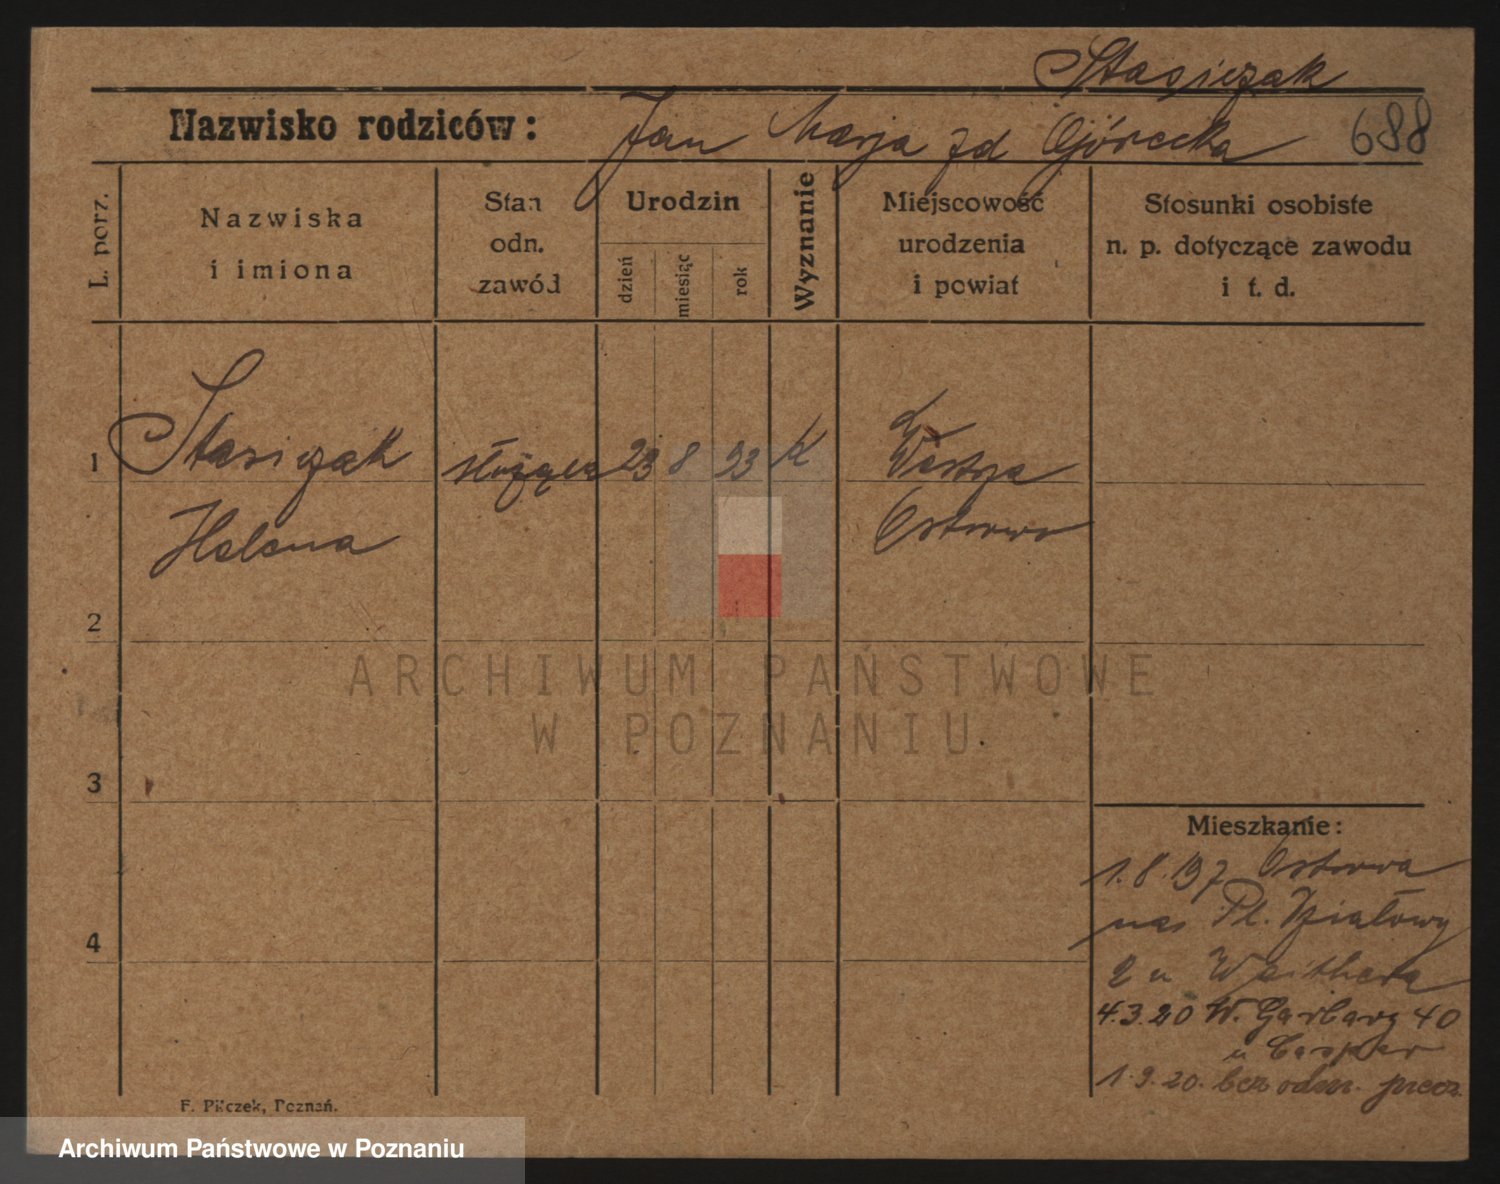 Stasiczak
Nazwisko rodziców: Jan Marja zd Górecka 688
L. porz.
Nazwiska
i imiona
Stan
odn.
zawód
Urodzin
dzień
miesiąc
rok
Wyznanie
Miejscowość
urodzenia
i powiat
Stosunki osobiste
n. p. dotyczące zawodu
i t. d.
1 Stasiczak służąca 23 8 23 K
Helena Ostrowo
2
ARCHIWUM PAŃSTWOWE
W POZNANIU
3
4
Mieszkanie:
1.8.19 z Ostrowa
na Pl. Działowy
2 u
4.3.20 W. Garbary 40
u Casper
1.9.20. bez odm.
F. Pilczek, Poznań.
Archiwum Państwowe w Poznaniu